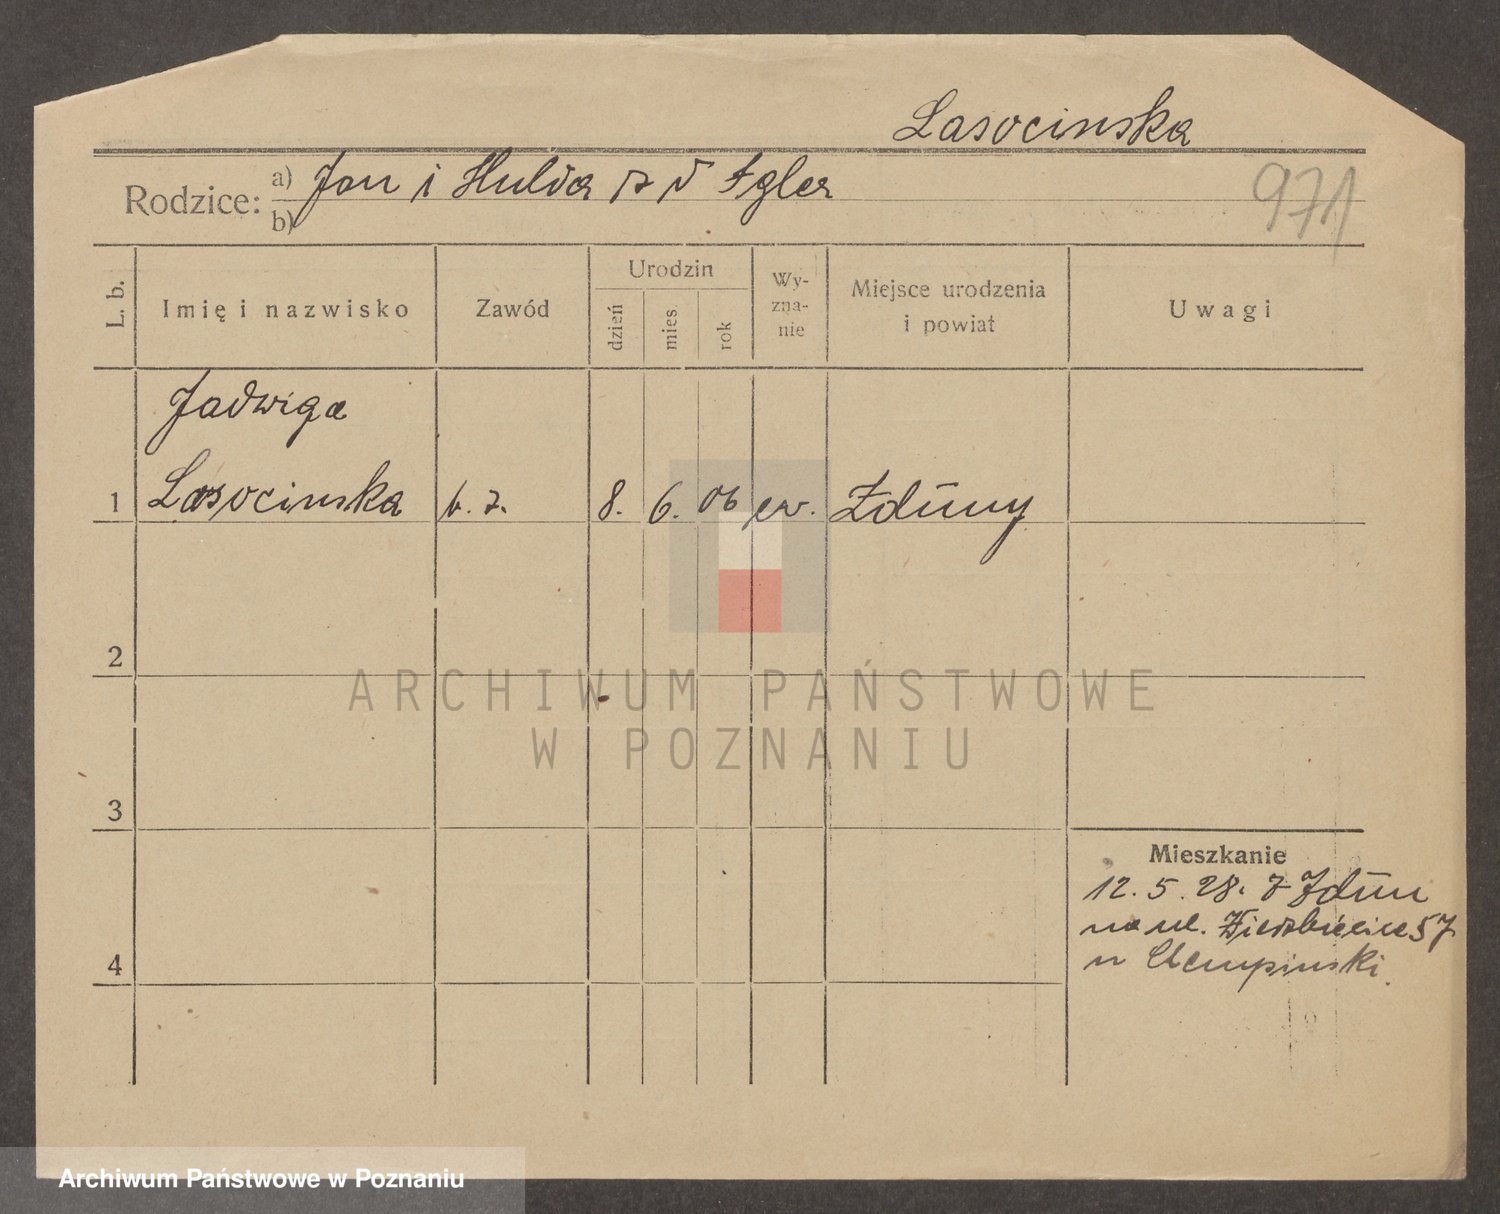 Lasocinska
971
Rodzice: a) Jan i Hulda z d Egler
b)
L. b. Imię i nazwisko Zawód Urodzin dzień mies. rok Wyznanie Miejsce urodzenia i powiat Uwagi
Jadwiga
1 Lasocinska b. z. 8. 6. 06 ew. Zduny
2
ARCHIWUM PAŃSTWOWE
W POZNANIU
3
Mieszkanie
12. 5. 28. z Zdun
na ul. 57
4
u
Archiwum Państwowe w Poznaniu